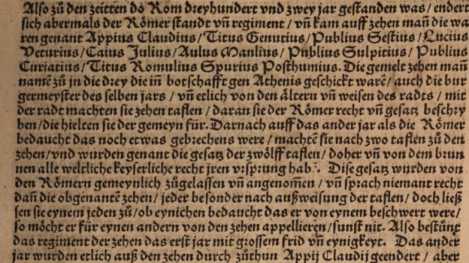 Also zů den zeitten do Rom dreyhundert vnd zwey jar gestanden was / endert
sich abermals der Rőmer standt vñ regiment / vñ kam auff zehen mañ die wa
ren genant Appius Claudius / Titus Genutius / Publius Sestius / Lucius
Veturius / Caius Julius / Aulus Manlius / Publius Sulpitius / Publius
Curiatius / Titus Romulius Spurius Posthumius. Die gemelt zehen mañ
namẽ zů in die drey die iñ botschafft gen Athenis geschickt warẽ / auch die bur
germeyster des selben jars / vñ etlich von den ältern vñ weisen des radts / mit
der radt machten sie zehen taflen / daran sie der Rőmer recht vñ gesatz beschry
ben / die hielten sie der gemeyn für. Darnach auff das ander jar als die Rőmer
bedaucht das noch etwas gebrechens were / machtẽ sie nach zwo taflen zů den
zehen / vnd wurden genant die gesatz der zwőlff taflen / doher vñ von dem brun
nen alle weltliche keyserliche recht iren vrsprung hab. Dise gesatz wurden von
den Rőmern gemeynlich zůgelassen vñ angenomen / vñ sprach niemant recht
dañ die obgenantẽ zehen / jeder besonder nach außweisung der taflen / doch ließ
sen sie eynem jeden zů / ob eynichen bedaucht das er von eynem beschwert were /
so mőcht er für eynen andern von den zehen appellieren / sunst nit. Also bestünt
das regiment der zehen das erst jar mit grossem frid vñ eynigkeyt. Das ander
jar wurden etlich auß den zehen durch zůthun Appij Claudij geendert / aber